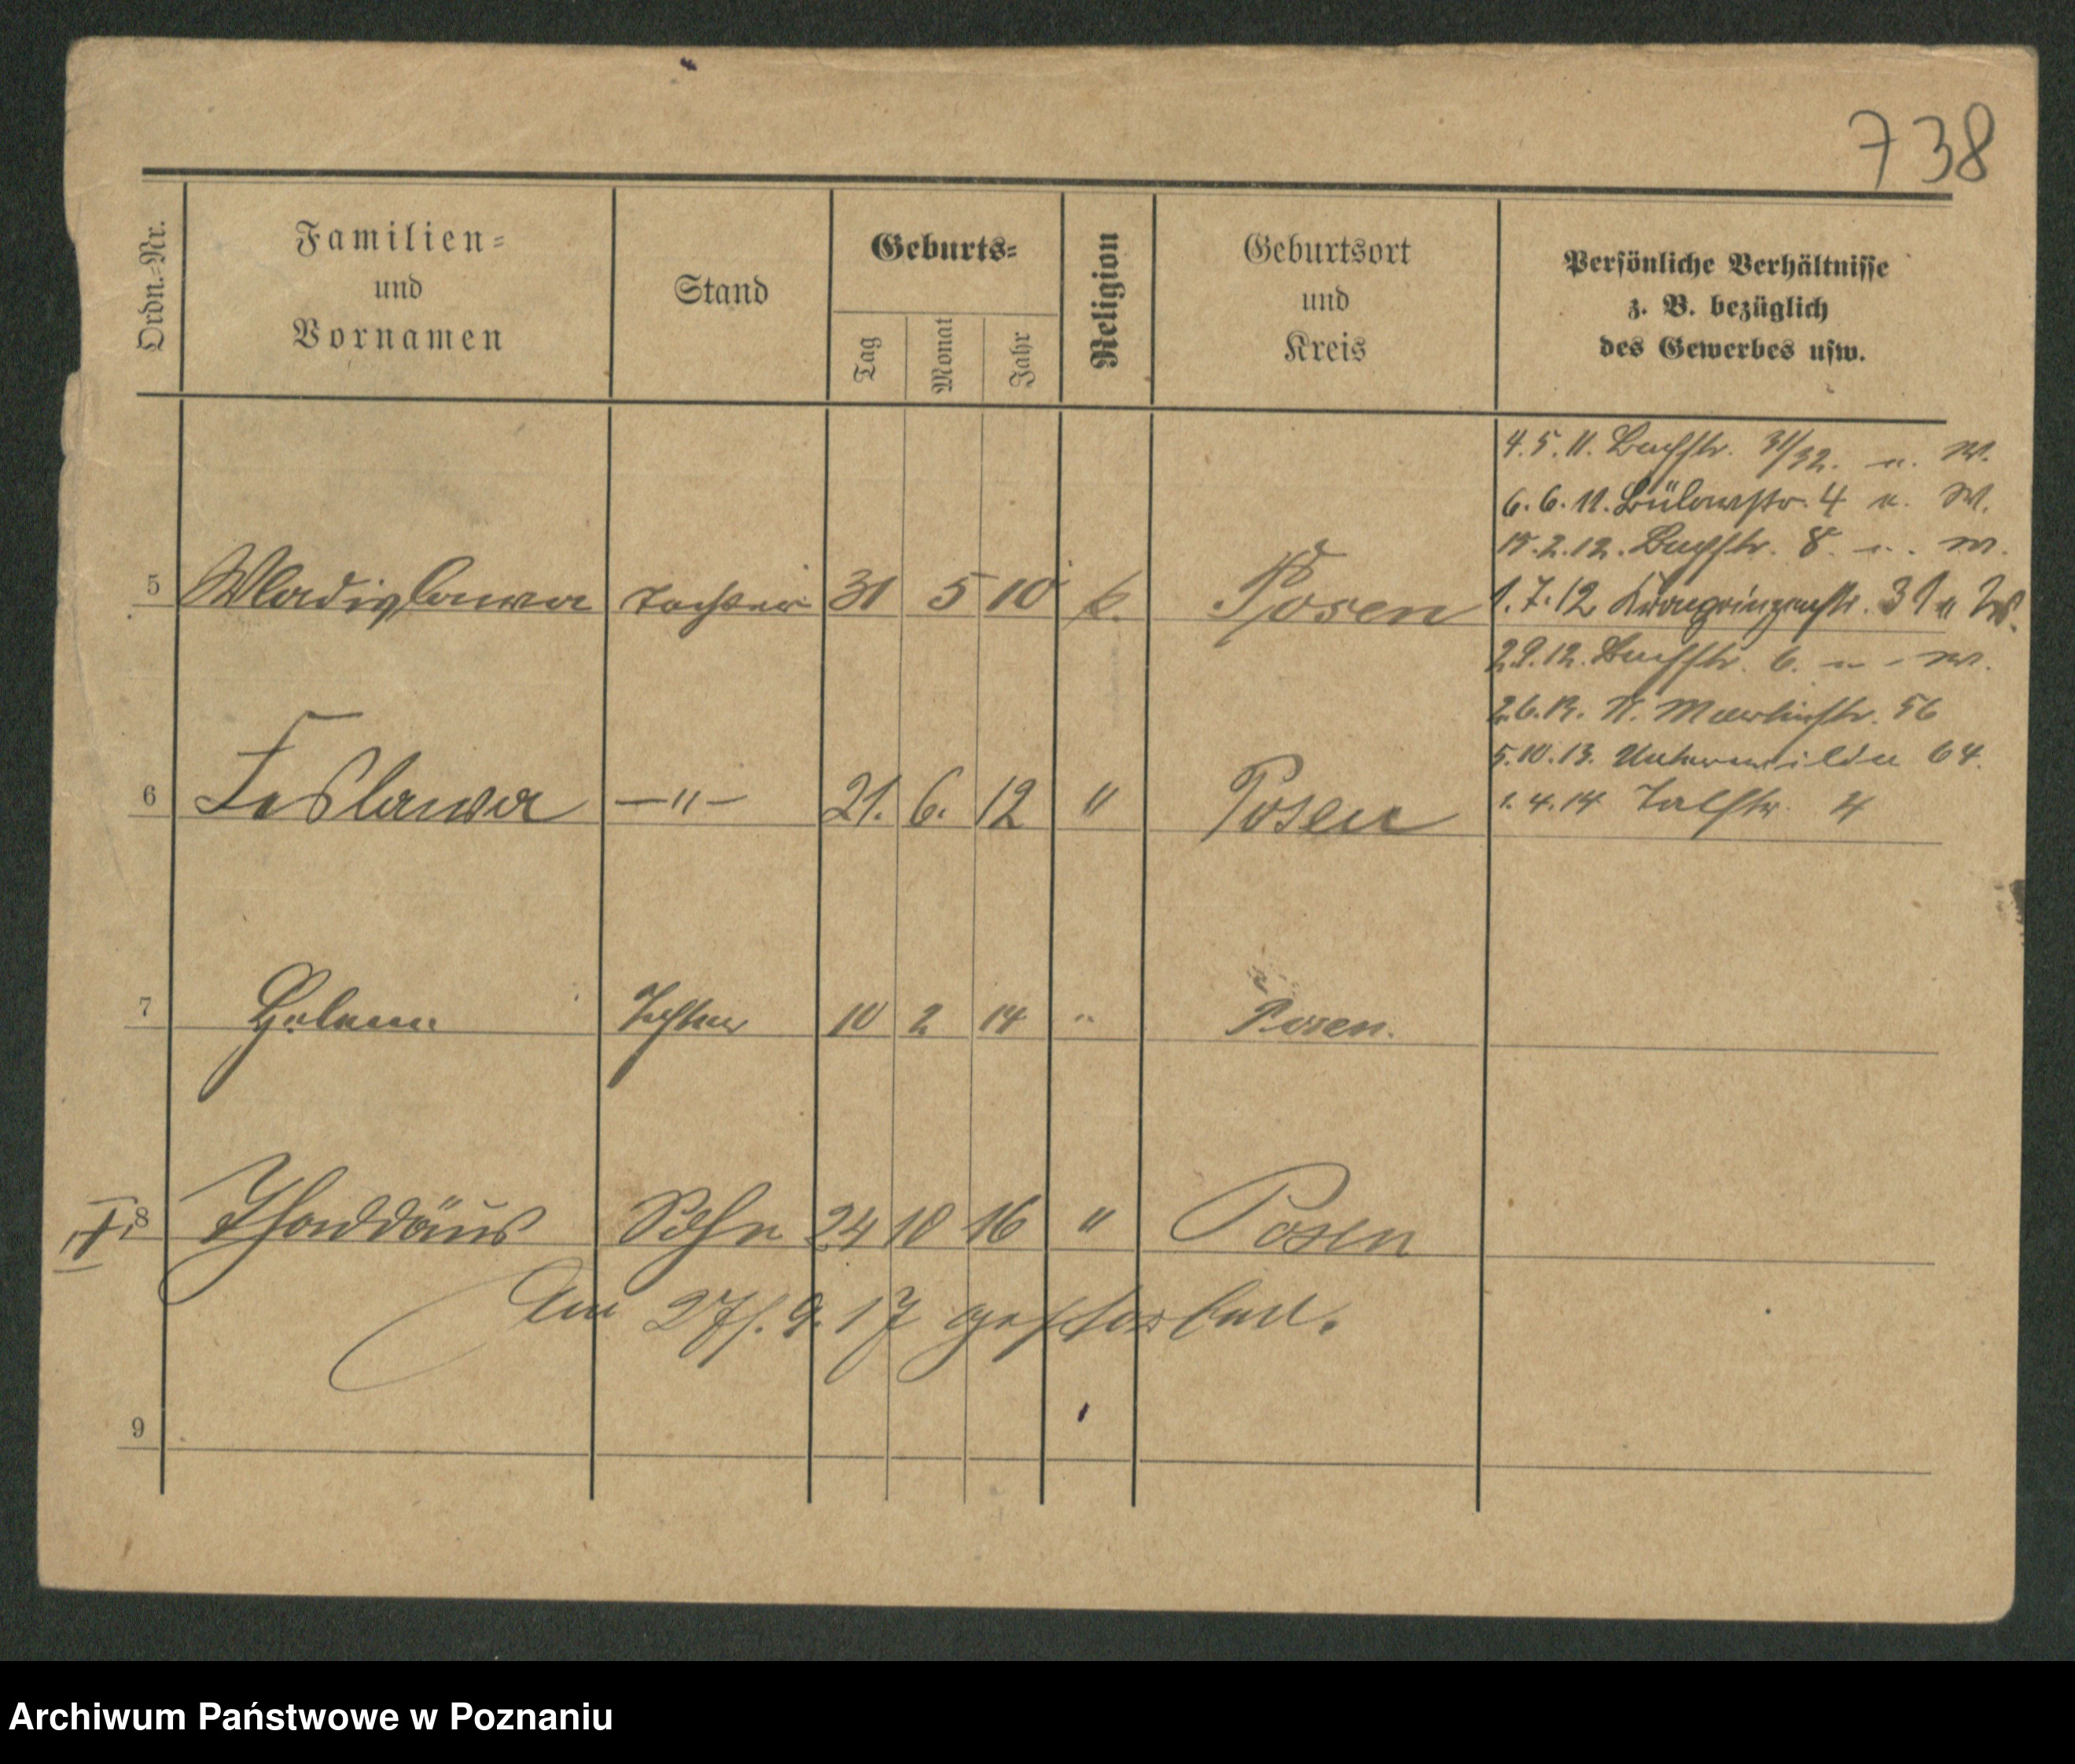 738
Ordn.-Nr.
Familien-
und
Vornamen
Stand
Geburts-
Tag
Monat
Jahr
Religion
Geburtsort
und
Kreis
Persönliche Verhältnisse
z. B. bezüglich
des Gewerbes usw.
4.5.11. Bachstr. 31/32. W.
6.6.11. Bülowstr. 4 W.
15.2.12. Bachstr. 8.
5 Wladislawa Tochter 31 5 10 k. Posen
1.7.12 Kronprinzenstr. W.
Bachstr. 6. W.
Martinstr. 56
5.10.13. Unterwilda 64.
6 —"— 21. 6. 12 " Posen
1.4.14 Talstr. 4
7 Helene Tochter 10 2 14 " Posen.
8 Thaddäus Sohn 24 10 16 " Posen
Am 27/. 9. 17 gestorben.
9
Archiwum Państwowe w Poznaniu